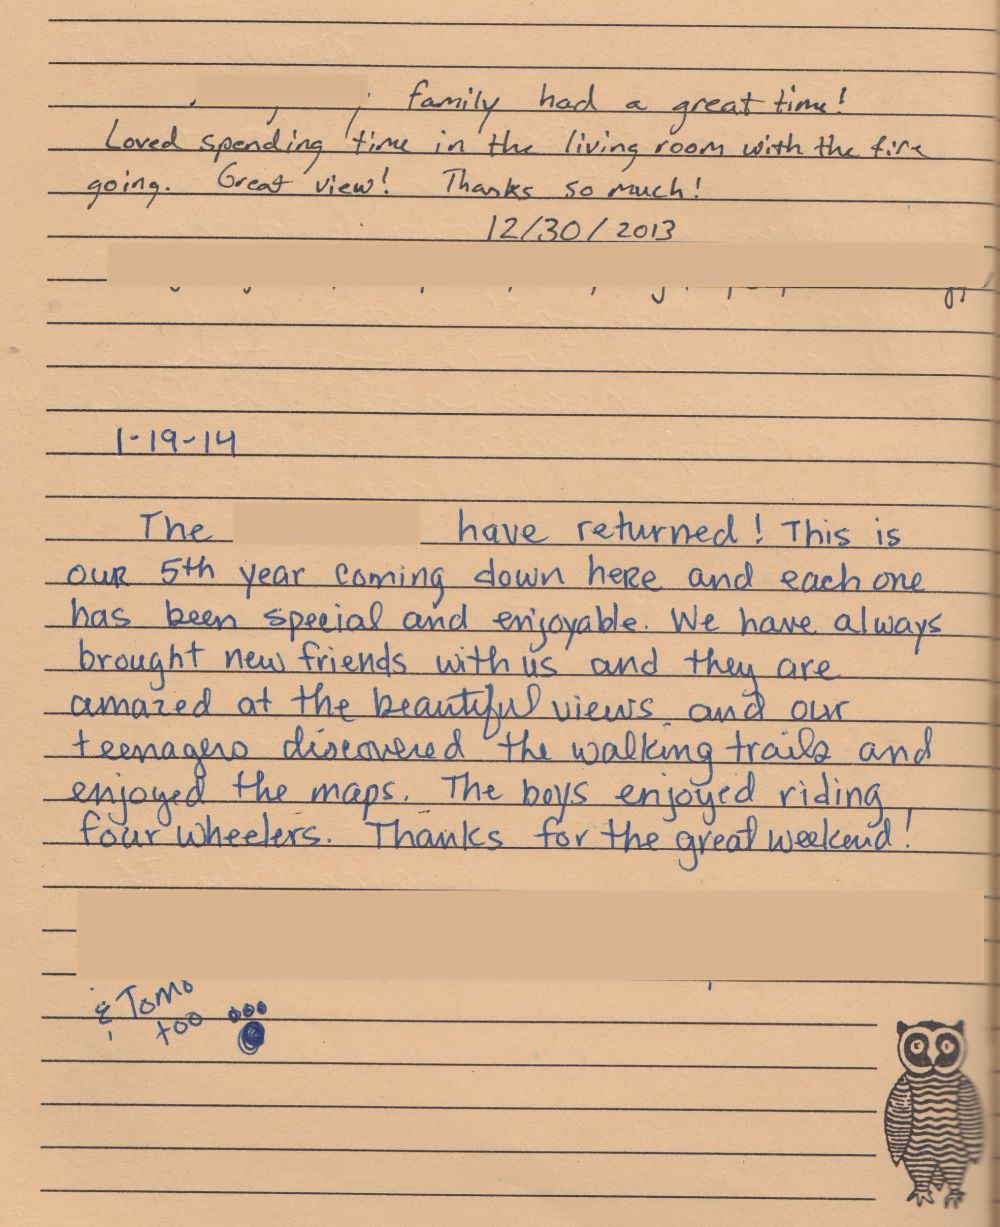 family had a great time!
Loved spending time in the living room with the fire
going. Great view! Thanks so much!
12/30/2013
1-19-14
The have returned! This is
our 5th year coming down here and each one
has been special and enjoyable. We have always
brought new friends with us and they are
amazed at the beautiful views and our
teenagers discovered the walking trails and
enjoyed the maps. The boys enjoyed riding
four wheelers. Thanks for the great weekend!
& Tomo
too